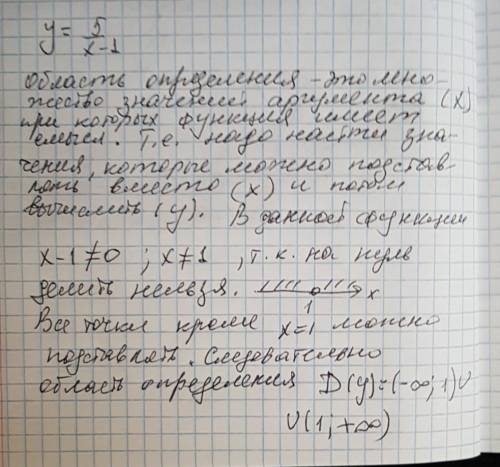 y = 5/(x-1)
Область определения - это мно-
жество значений аргумента (x)
при которых функция имеет
смысл. Т.е. надо найти зна-
чения, которые можно подстав-
лять вместо (x) и потом
вычислить (y). В данной функции
x-1≠0 ; x≠1 , т.к. на нуль
делить нельзя. 1 x
Все точки кроме x=1 можно
подставлять. Следовательно
область определения D(y)=(-∞;1)∪
∪(1;+∞)